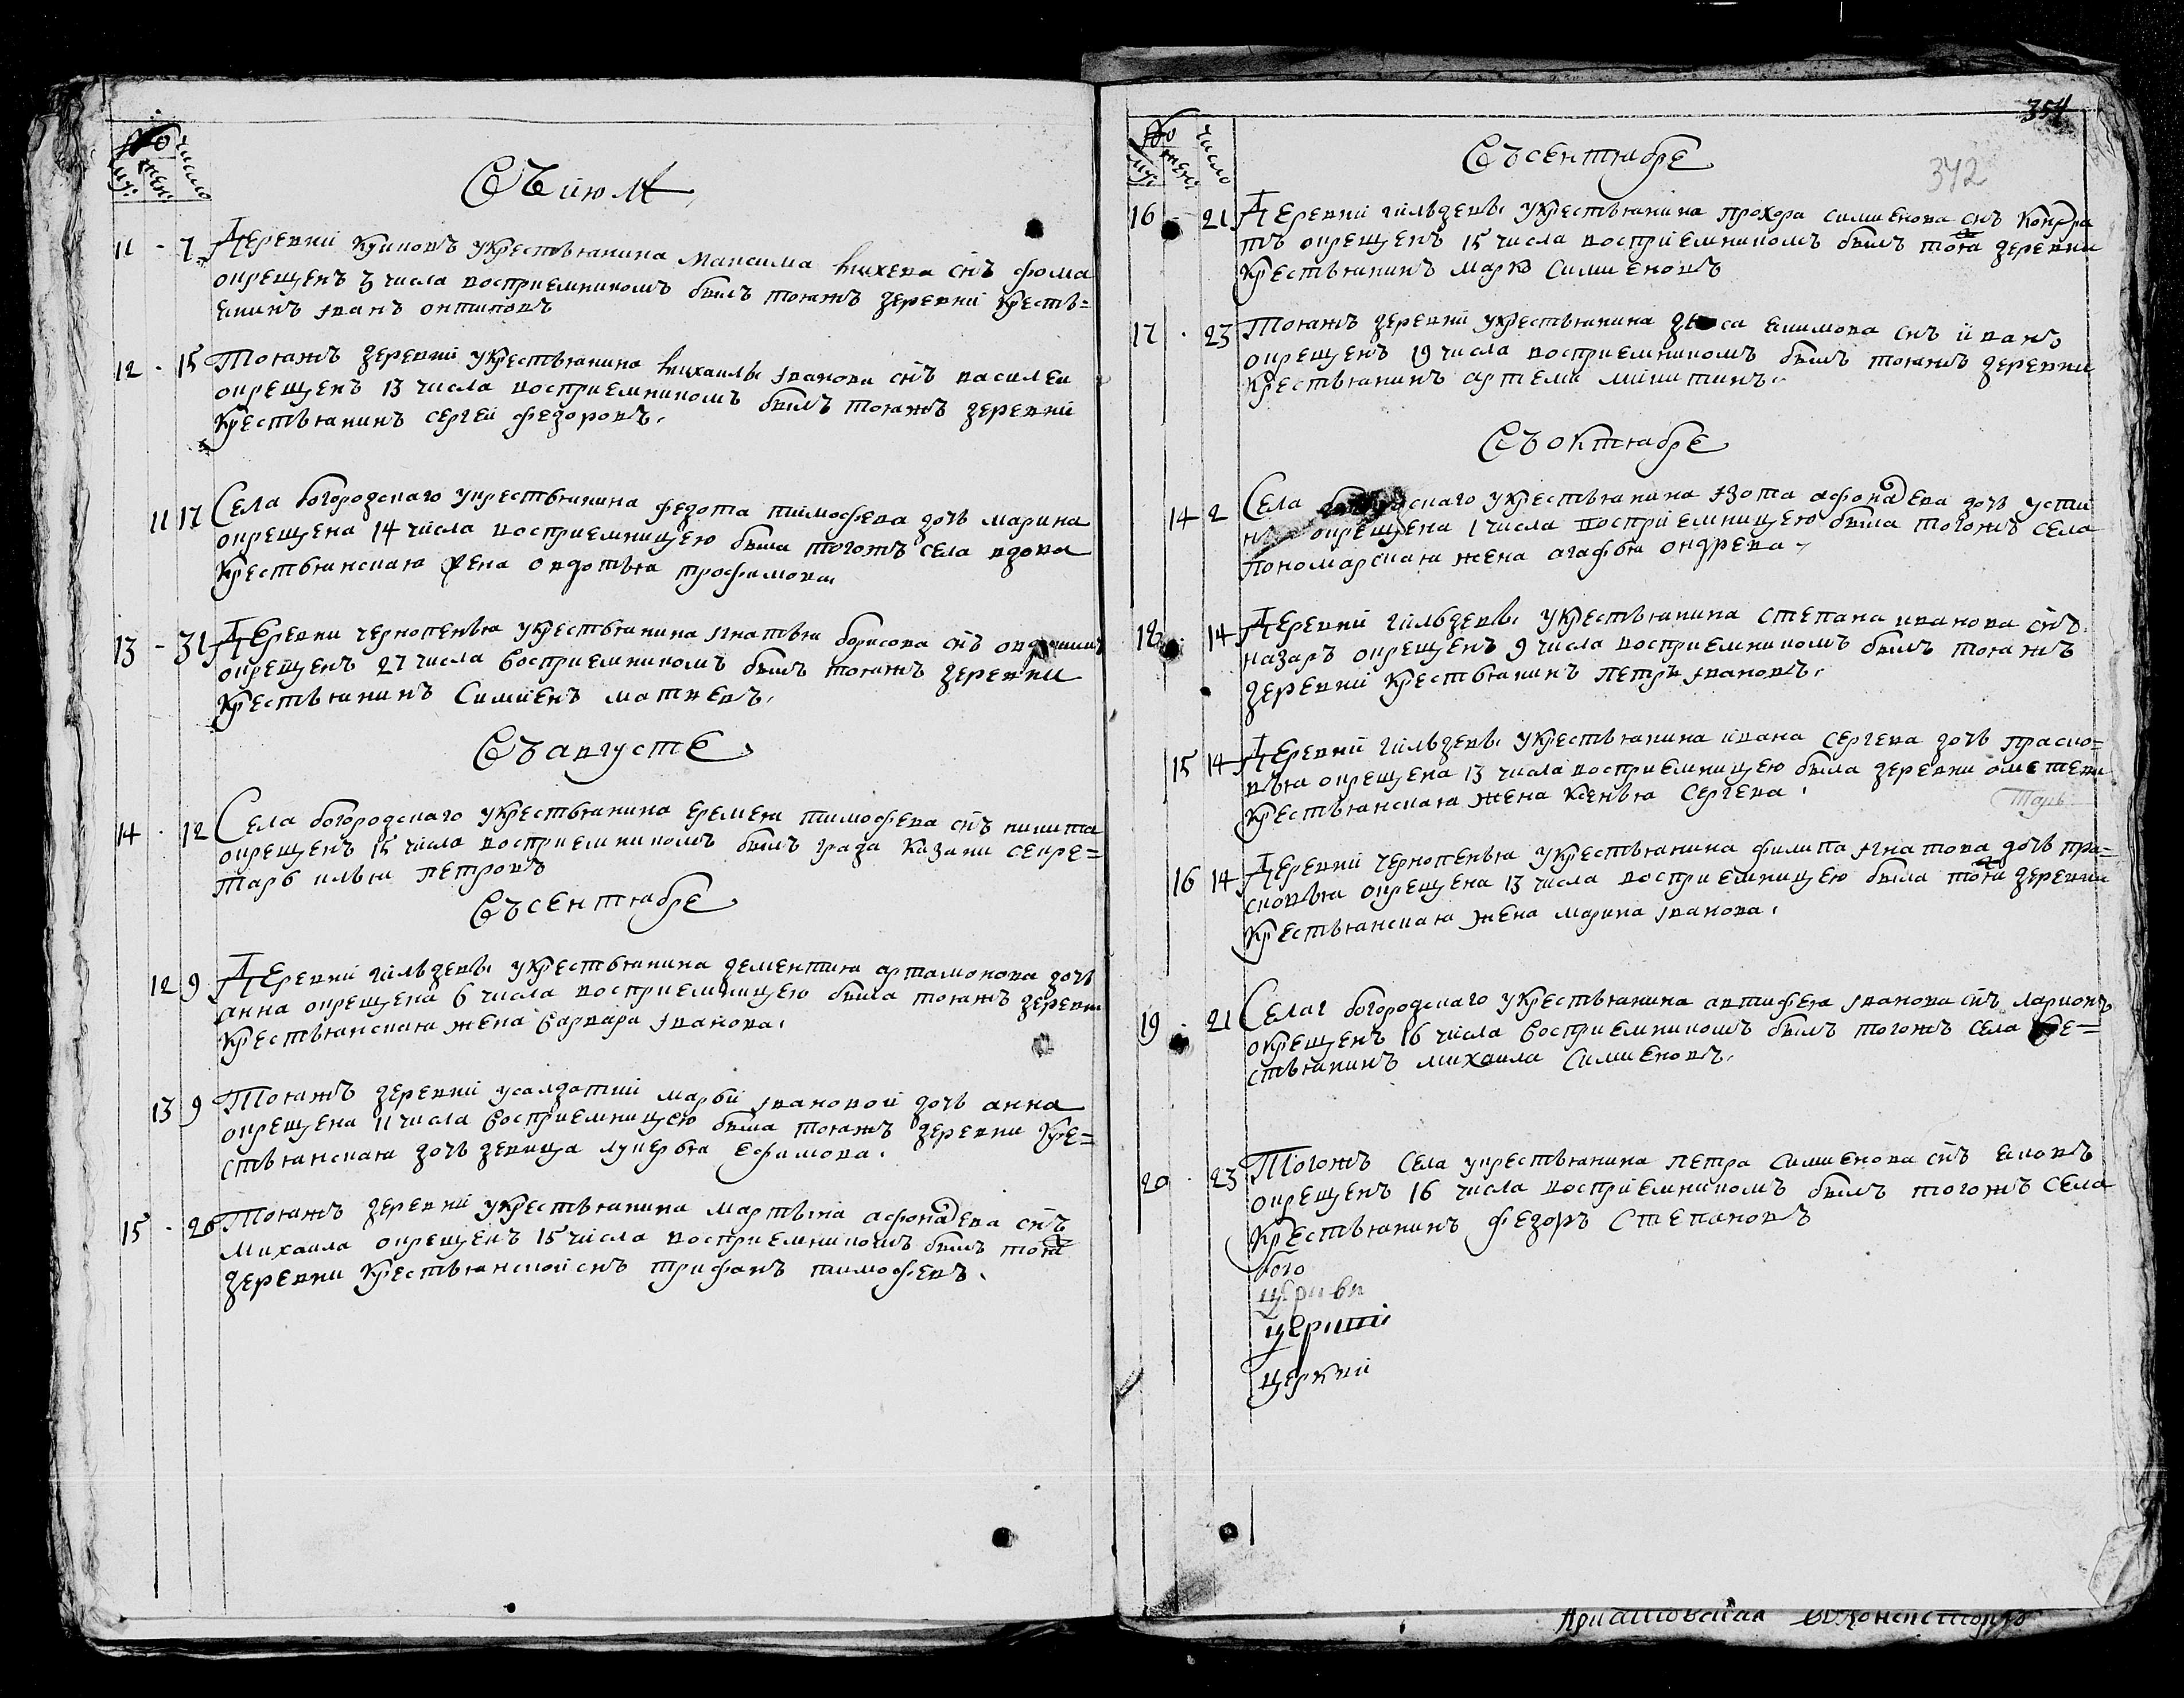 No число
муж: жен:
Въ июле
11 - 7 Деревни Куюковъ у крестьянина Максима Михева снъ фома
окрещенъ 3 числа восприемникомъ былъ тояжъ деревни кресть=
янинъ иванъ онтиповъ
12 - 15 Тояжъ деревни у крестьянина Михаилы иванова снъ василеи
окрещенъ 13 числа восприемникомъ былъ тояжъ деревни
крестьянинъ сергеи федоровъ.
11 17 Села богородскаго у крестьянина федота тимофева дочь марина
окрещена 14 числа восприемницею была тогожъ села вдова
крестьянская жена овдотья трофимова
13 - 31 Деревни чернопенья у крестьянина игнатья борисова снъ
окрещенъ 27 числа восприемникомъ былъ тояжъ деревни
крестьянинъ Симиенъ матвевъ.
Въ августе
14 - 12 Села богородскаго у крестьянина еремея тимофева снъ никита
окрещенъ 15 числа восприемникомъ былъ града Казани секре=
тарь илья петровъ
Въ сентябре
12 9 Деревни гильдевы у крестьянина дементия артамонова дочь
анна окрещена 6 числа восприемницею была тояжъ деревни
крестьянская жена варвара иванова.
13 9 Тояжъ деревни у салдатки марьи ивановой дочь анна
окрещена 11 числа восприемницею была тояжъ деревни кре=
стьянская дочь девица лукерья ефимова.
15 - 20 Тояжъ деревни у крестьянина мартына афонасева снъ
михаила окрещенъ 15 числа восприемникомъ былъ тояж
деревни крестьянской снъ трифанъ тимофевъ.
354
342
No число
муж: жен:
Въ сентябре
16 - 21 Деревни гильдевы у крестьянина прохора симиенова снъ Кондра
тъ окрещенъ 15 числа восприемникомъ былъ тояж деревни
крестьянинъ марко Симиеновъ
17 - 23 Тояжъ деревни у крестьянина екимова снъ иванъ
окрещенъ 19 числа восприемникомъ былъ тояжъ деревни
крестьянинъ артемеи микитинъ.
Въ октябре
14 2 Села богородскаго у крестьянина изота афонасева дочь усти
нья окрещена 1 числа восприемницею была тогожъ села
пономарская жена агафья ондрева.
18 - 14 Деревни гильдевы у крестьянина степана иванова снъ
назаръ окрещенъ 9 числа восприемникомъ былъ тояжъ
деревни крестьянинъ петръ ивановъ.
15 14 Деревни гильдевы у крестьянина ивана сергева дочь праско=
вья окрещена 13 числа восприемницею была деревни ометеви
крестьянская жена ксенья сергева.
Тарь
16 14 Деревни чернопенья у крестьянина филипа игнатова дочь пра=
сковья окрещена 13 числа восприемницею была тояж деревни
крестьянская жена марина иванова.
19 - 21 Селаг богородскаго у крестьянина антифея иванова снъ ларионъ
окрещенъ 16 числа восприемникомъ былъ тогожъ села кре=
стьянинъ михаила Симиеновъ.
20 - 23 Тогожъ села у крестьянина петра симиенова снъ яковъ
окрещенъ 16 числа восприемникомъ былъ тогожъ села
крестьянинъ федоръ Степановъ
бого
церкви
церкви
церкви